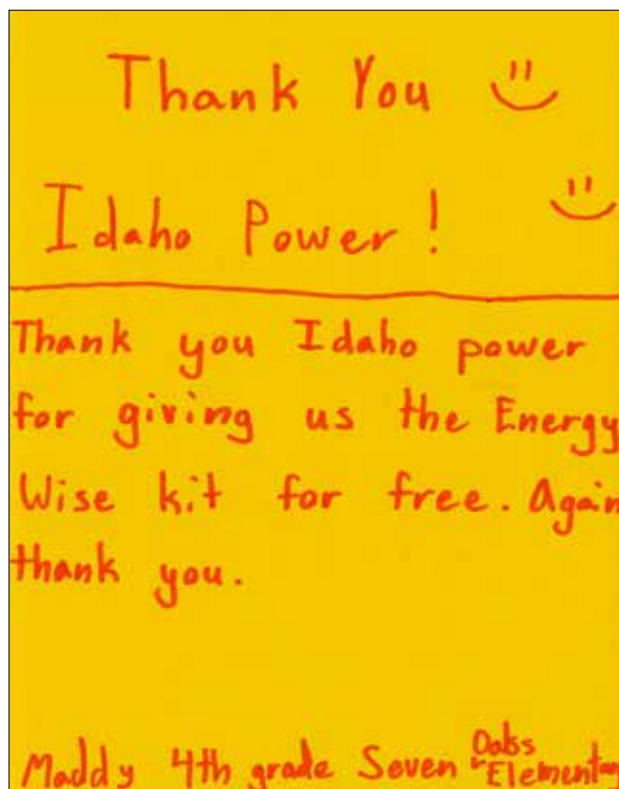 Thank You
Idaho Power!
Thank you Idaho power
for giving us the Energy
Wise kit for free. Again
thank you.
Maddy 4th grade Seven Oaks Elementary